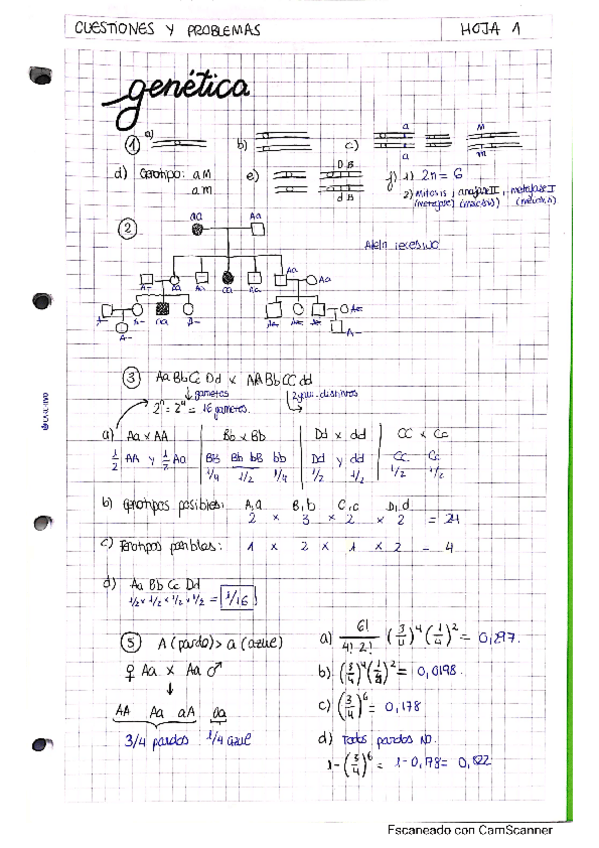 CUESTIONES Y PROBLEMAS HOJA 1
genética
① a) b) c) a a M m
d) Genotipo: aM
am
e) D B d B
f) 1) 2n = 6
2) mitosis, anafase II, metafase I
(metafase) (meiosis) (meiosis)
② aa Aa
Alelo recesivo
A- Aa Aa aa Aa Aa Aa
A- A- aa A-
A-
A-
③ Aa Bb Cc Dd x AA Bb CC dd
gametos
2ⁿ = 2⁴ = 16 gametos.
a) Aa x AA Bb x Bb Dd x dd CC x Cc
1/2 AA y 1/2 Aa BB Bb bB bb Dd y dd CC Cc
1/4 1/2 1/4 1/2 1/2 1/2 1/2
b) Genotipos posibles: A,a B,b C,c D,d
2 x 3 x 2 x 2 = 24
c) Fenotipos posibles: 1 x 2 x 1 x 2 = 4
d) Aa Bb Cc Dd
1/2 x 1/2 x 1/2 x 1/2 = 1/16
⑤ A (pardo) > a (azul)
♀ Aa x Aa ♂
AA Aa aA aa
3/4 pardos 1/4 azul
a) 6!/4! 2! (3/4)⁴ (1/4)² = 0,297.
b) (3/4)⁴ (1/4)² = 0,0198.
c) (3/4)⁶ = 0,178
d) Todos pardos NO.
1-(3/4)⁶ = 1-0,178= 0,822
Escaneado con CamScanner